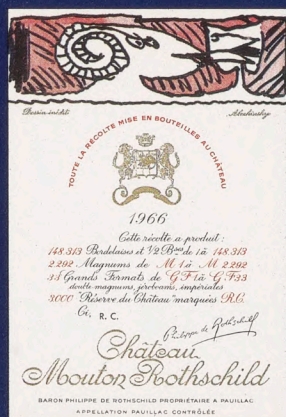 Dessin inédit
Alechinsky
TOUTE LA RÉCOLTE MISE EN BOUTEILLES AU CHÂTEAU
1966
Cette récolte a produit :
148.313 Bordelaises et 1/2 Bses de 1 à 148.313
2.292 Magnums de M 1 à M 2.292
33 Grands Formats de G F 1 à G F 33
double magnums, jéroboams, impériales
3000 "Réserve du Château" marquées R.C.
Ci, R. C.
Philippe de Rothschild
Château
Mouton Rothschild
BARON PHILIPPE DE ROTHSCHILD PROPRIÉTAIRE A PAUILLAC
APPELLATION PAUILLAC CONTRÔLÉE